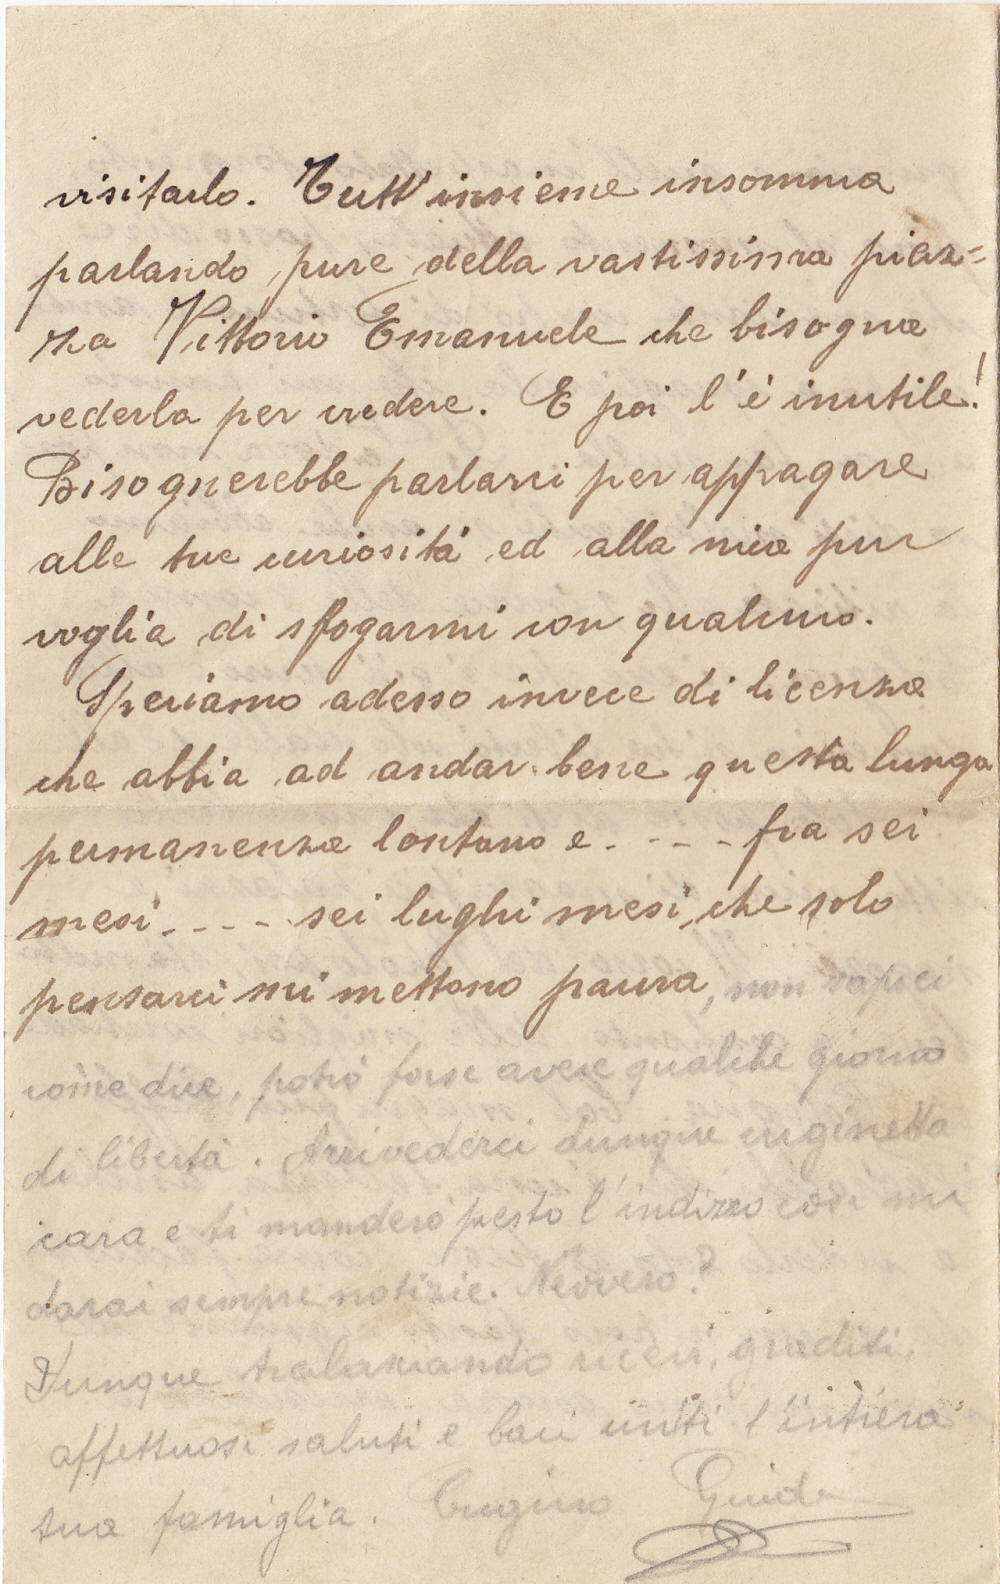 visitarlo. Tutt'insieme insomma
parlando pure della vastissima piaz=
za Vittorio Emanuele che bisogna
vederla per credere. E poi l'é inutile!
Bisognerebbe parlarci per appagare
alle tue curiositá ed alla mia pur
voglia di sfogarmi con qualcuno.
Speriamo adesso invece di licenza
che abbia ad andar bene questa lunga
permanenza lontano e.--- fra sei
mesi.--- sei lughi mesi, che solo
pensarci mi mettono paura, non saprei
come dire, potró forse avere qualche giorno
di libertà. Arrivederci dunque cuginetta
cara e ti manderó presto l'indirizzo cosi mi
darai sempre notizie. Nevvero?
Dunque tralasciando ricevi, graditi,
affettuosi saluti e baci uniti l'intiera
tua famiglia. Cugino Guido